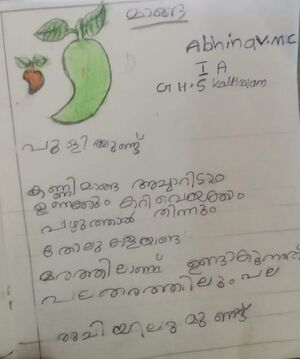 മാങ്ങ
Abhinav.M.C
I A
G H.S Kalthalam
പുളിയുണ്ട്
കണ്ണിമാങ്ങ അച്ചാറിടാം
ഉണക്കും കറി വെയക്കം
പഴുത്താൽ തിന്നും
തോലു കളയണ്ട
മരത്തിലാണ് ഉണ്ടാകുന്നത്
പലതരത്തിലും പല
രുചിയിലുമുണ്ട്